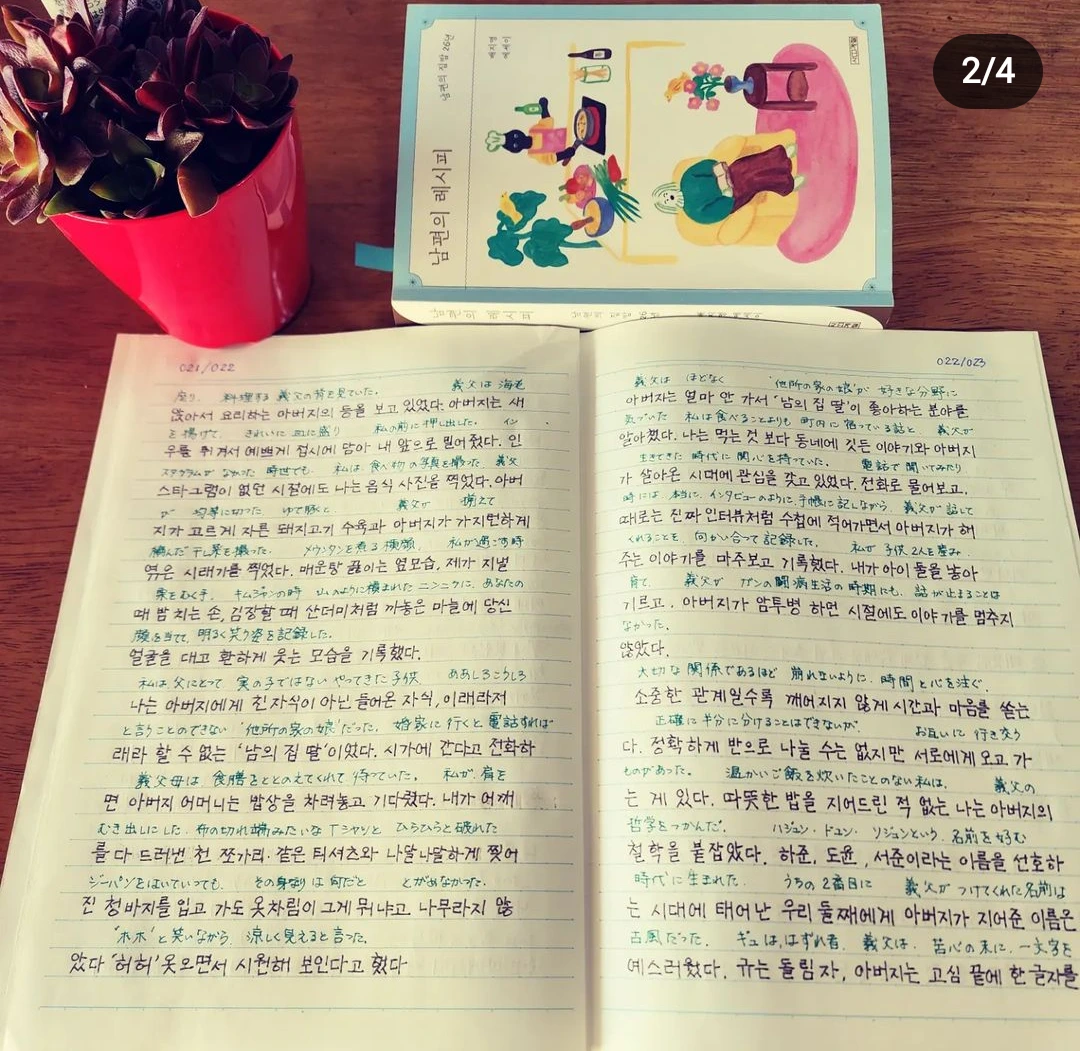 2/4
남편의 레시피
남편의 집밥 26년
배지영 에세이
남편의 레시피
021/022
座り、料理する 義父の背を見ていた。 義父は 海老
앉아서 요리하는 아버지의 등을 보고 있었다. 아버지는 새
を揚げて、きれいに 皿に盛り 私の前に押し出した。 イン
우를 튀겨서 예쁘게 접시에 담아 내 앞으로 밀어줬다. 인
スタグラムが なかった 時世でも、私は 食べ物の写真を撮った 義父
스타그램이 없던 시절에도 나는 음식 사진을 찍었다. 아버
が 均等に切った ゆで豚と 義父が 揃えて
지가 고르게 자른 돼지고기 수육과 아버지가 가지런하게
編んだ 干し菜を撮った。 メウンタンを煮る横顔、 私が過ごす時
엮은 시래기를 찍었다. 매운탕 끓이는 옆모습, 제가 지낼
栗をむく手、 キムジャンの時 山のように積まれた ニンニクに、あなたの
때 밤 치는 손, 김장할 때 산더미처럼 까놓은 마늘에 당신
顔を当てて、明るく笑う姿を記録した。
얼굴을 대고 환하게 웃는 모습을 기록했다.
私は 父にとって 実の子ではない やってきた子供、 ああしろこうしろ
나는 아버지에게 친자식이 아닌 들어온 자식, 이래라저
と言うことのできない '他所の家の娘'だった。 婚家に行くと 電話すれば
래라 할 수 없는 '남의 집 딸'이었다. 시가에 간다고 전화하
義父母は 食膳をととのえてくれて 待っていた。 私が 肩を
면 아버지 어머니는 밥상을 차려놓고 기다렸다. 내가 어깨
むき出しにした 布の切れ端みたいな Tシャツと ひらひらと破れた
를 다 드러낸 천 쪼가리 같은 티셔츠와 나달나달하게 찢어
ジーパンをはいていっても、 その身なりは何だと とがめなかった。
진 청바지를 입고 가도 옷차림이 그게 뭐냐고 나무라지 않
'ホホ'と笑いながら 涼しく見えると言った。
았다 '허허' 웃으면서 시원해 보인다고 했다
022/023
義父は ほどなく '他所の家の娘'が 好きな分野に
아버자는 얼마 안 가서 '남의 집 딸'이 좋아하는 분야를
気づいた 私は食べることよりも 町内に 宿っている話と 義父が
알아챘다. 나는 먹는 것 보다 동네에 깃든 이야기와 아버지
生きてきた 時代に 関心を持っていた。 電話で 聞いてみたり
가 살아온 시대에 관심을 갖고 있었다. 전화로 물어보고,
時には、本当に、インタビューのように、手帳に記しながら 義父が話して
때로는 진짜 인터뷰처럼 수첩에 적어가면서 아버지가 해
くれることを 向かい合って 記録した。 私が 子供 2人を産み、
주는 이야기를 마주보고 기록했다. 내가 아이 둘을 낳아
育て、 義父が ガンの闘病生活の時期にも、話が止まることは
기르고, 아버지가 암투병 하던 시절에도 이야기를 멈추지
なかった。
않았다.
大切な 関係であるほど 崩れないように、時間と心を注ぐ。
소중한 관계일수록 깨어지지 않게 시간과 마음을 쏟는
正確に半分に分けることはできないが、 お互いに 行き交う
다. 정확하게 반으로 나눌 수는 없지만 서로에게 오고 가
ものがあった。 温かいご飯を炊いたことのない私は、 義父の
는 게 있다. 따뜻한 밥을 지어드린 적 없는 나는 아버지의
哲学をつかんだ。 ハジュン・ドユン・ソジュンという、名前を好む
철학을 붙잡았다. 하준, 도윤, 서준이라는 이름을 선호하
時代に生まれた、 うちの 2番目に 義父が つけてくれた名前は
는 시대에 태어난 우리 둘째에게 아버지가 지어준 이름은
古風だった。 ギュは、はずれ者、 義父は、苦心の末に、一文字を
예스러웠다. 규는 돌림자, 아버지는 고심 끝에 한 글자를